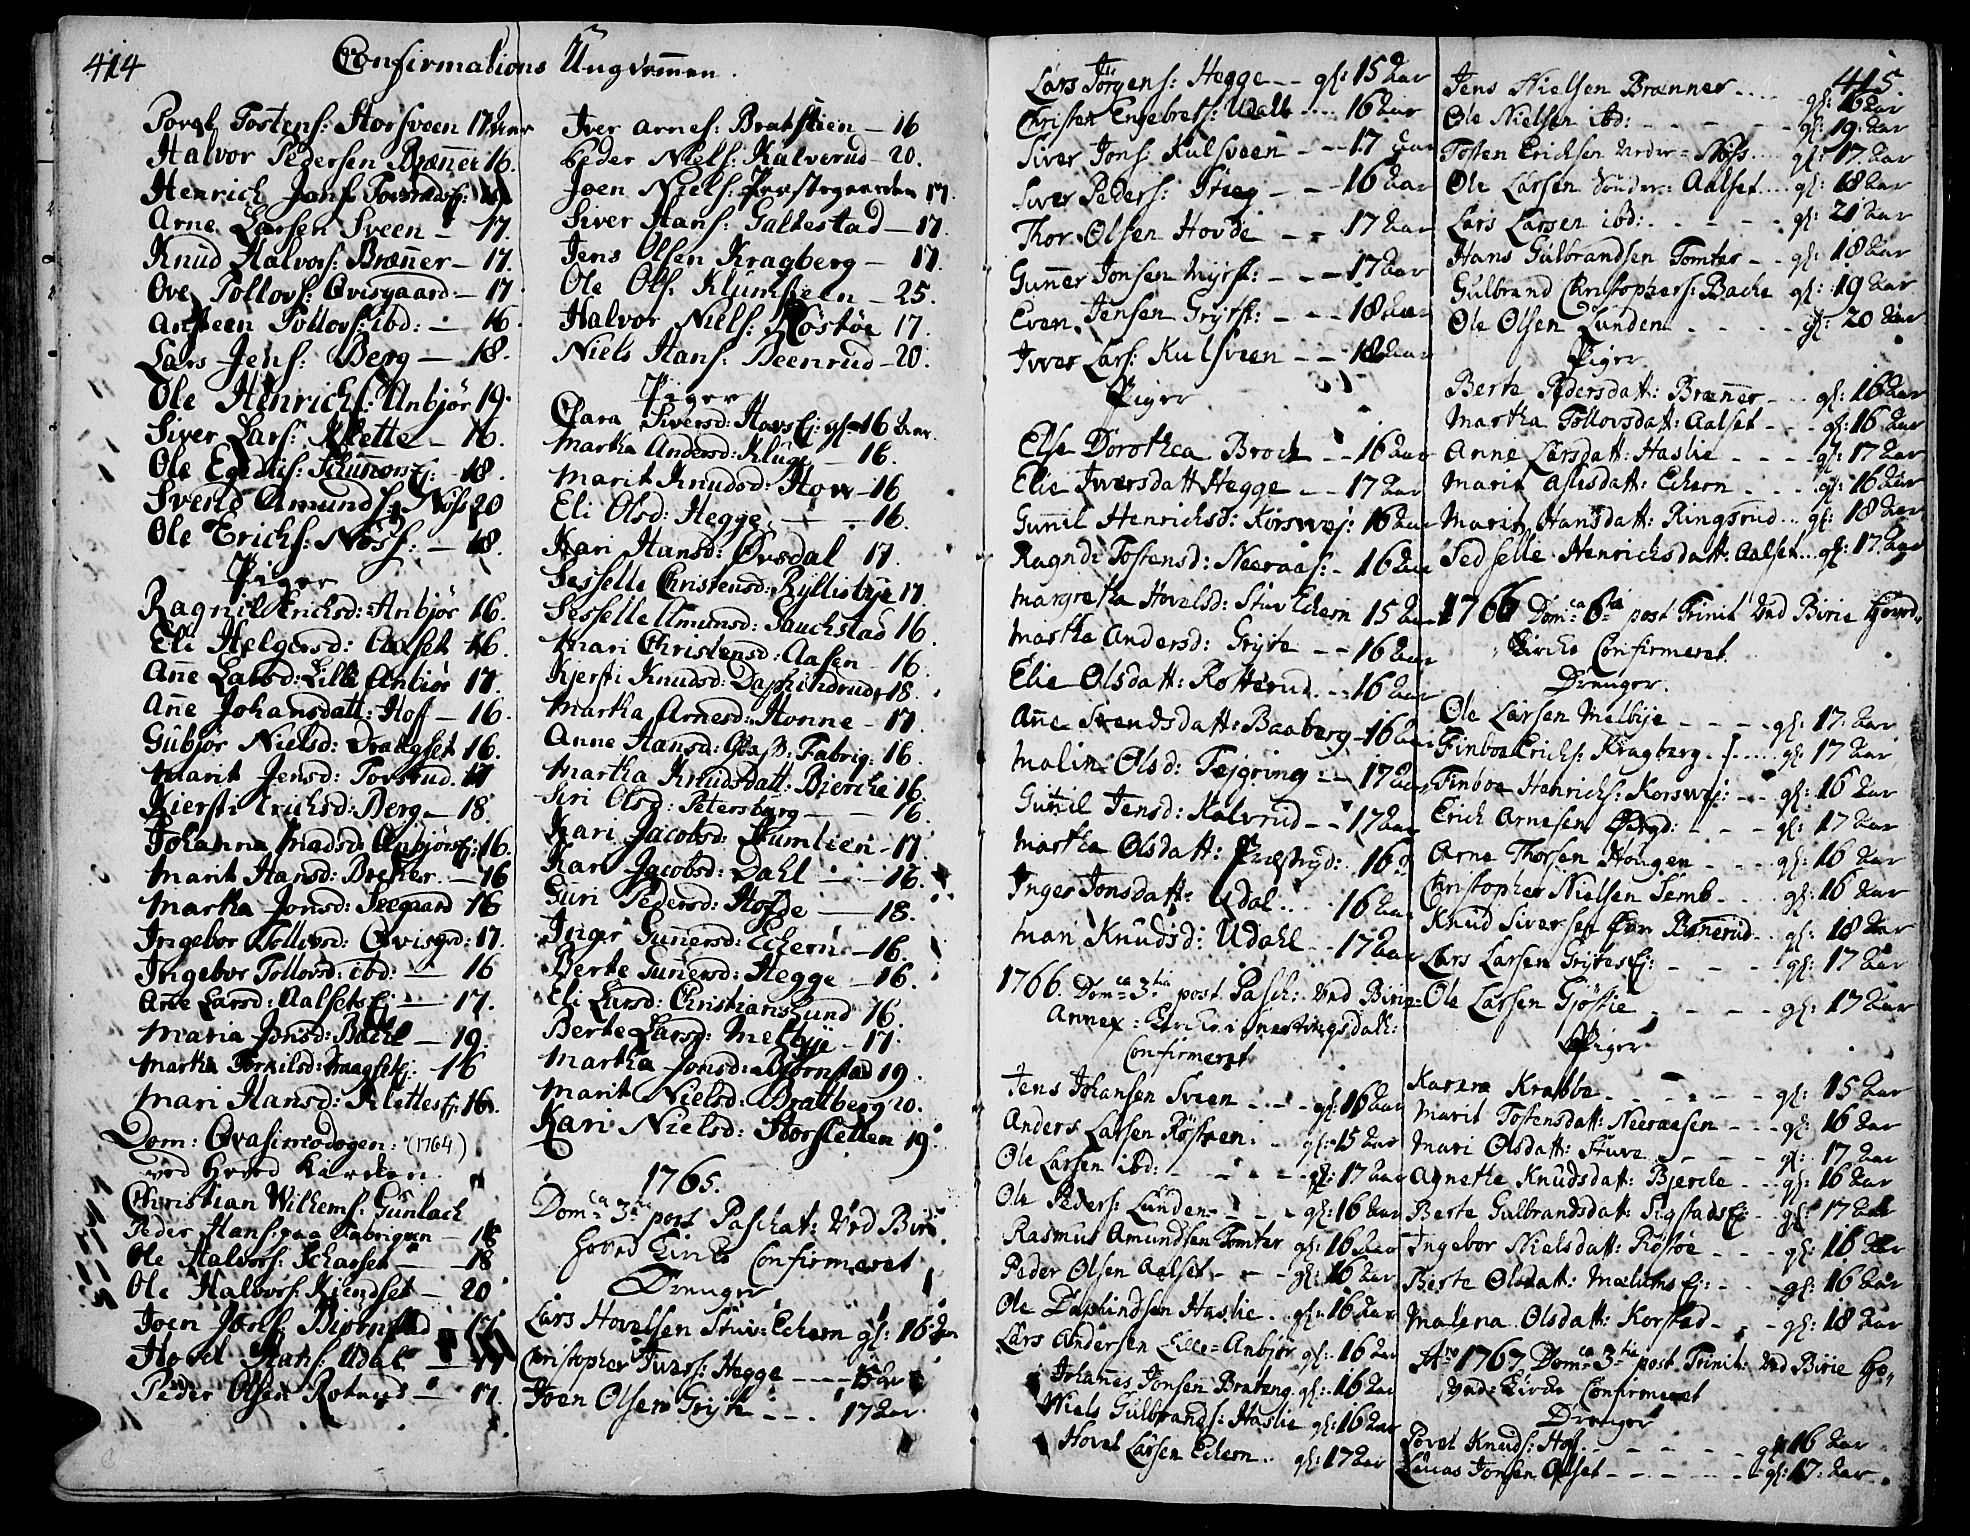 414
Confirmations Ungdommen.
Povel Tostens: Storsveen 17 Aar
Halvor Pedersen Brænner 16.
Henrich Jons
Arne Larsen Sveen - 17.
Knud Halvors: Brænner - 17.
Ove Tollovs: Qvisgaard - 17
Tollovs: ibd: - 16.
Lars Jens: Berg - 18.
Ole Henrichs: Anbjør 19.
Siver Lars: Klette - 16.
Ole 18.
Svend Amunds: Nøss 20
Ole Erichs: Nøss: - 18.
Piger
Ragnil Erichsd: Anbjør 16.
Eli Helgersd: Aalset 16.
Anne Larsd: Lille Anbiør 17.
Anne Johansdatt: Hoff - 16.
Gubjør Nielsd: Draugset 16.
Marit Jensd: Torsrud. 17
Kiersti Erichsd: Berg - 18.
Johanna Madsd: Anbjørs Ej: 16.
Marit Hansd: - 16
Martha Jonsd: 16
Ingebor Tollovsd: Qvisgrd: 17.
Ingebor Tollovsd: ibd: - 16
Anne Larsd: Aalsets Ej: - 17.
Maria Jonsd: - 19.
Martha 16
Mari Hansd: Klettes Ej: 16.
Dom: Qvasimodogen: (1764)
ved Hoved Kircken.
Christian Wilhems: Gunlach
Peder Hans: paa Fabriqven - 18
Ole Halvors: - 18
Ole Halvors: Kiendset - 20
Joen Joens: Biørnstad
Hovel Hans: Udal - 17
Peder Olsen - 17.
Iver Arnes: Bratstien - 16
Peder Niels: Kalverud - 20.
Joen Niels: Præstegaarden 17.
Siver Hans: Galtestad - 17.
Jens Olsen Kragberg - 17.
Ole Ols: Klumlien - 25.
Halvor Niels: Røstøe 17.
Niels Hans: Beenrud - 20.
Piger
Clara Siversd: Hovs Ej: gl: 16 Aar.
Martha Andersd: Kluge - 16.
Marit Knudsd: Hov - 16
Eli Olsd: Hegge - 16.
Kari Hansd: 17.
Sesselle Christensd: Ryllisbye 17.
Sesselle Amunsd: Sauchstad 16.
Mari Christensd: Aasen - 16.
Kjersti Knudsd: 18.
Martha Arnesd: Honne - 17.
Anne Hansd: Glass Fabriq: 16.
Martha Knudsdatt: Biercke 16.
Siri Olsd: Petersburg - 16.
Kari Jacobsd: 17.
Kari Jacobsd: Dahl - 16.
Guri Pedersd: - 18.
Inger Gunersd: Echern - 16.
Berte Gunersd: Hegge - 16.
Eli Larsd: Christianslund 16.
Berte Larsd: Melbye - 17.
Martha Jonsd: Bjørnstad 19.
Marit Nielsd: Brattberg 20.
Kari Nielsd: Storsletten 19.
1765.
Domca 3tia post Paschat: Ved Birie
Hoved Kirke Confirmeret
Drenger
Lars Hovelsen Stuv: Echern gl: 16 Aar
Christopher Ivers: Hegge
Joen Olsen Gryte - 17 Aar
Lars Jørgens: Hegge -- gl: 15 Aar
Christen Engebrets: Udall .... 16 Aar
Siver Jons: Kulsveen -- 17 Aar
Siver Peders: Stieg -- 16 Aar
Thor Olsen Hovde -- 17 Aar
Guner Jonsen 17 Aar
Even Jensen 18 Aar
Iver Lars: Kulsveen -- 18 Aar
Piger
Else Dorothea Brock -- 16 Aar
Elie Iversdatt: Hegge -- 17 Aar
Gunil Henrichsd: Korsvej: 16 Aar
Ragndi Tostensd: Neeraas: - 16 Aar
Margretha Hovelsd: Stuv Echern 15 Aar
Martha Andersd: Gryte -- 16 Aar
Elie Olsdatt: Rotterud. -- 16 Aar
Anne Svendsdatt: Baaberg - 16 Aar
Malin Olsd: 17 Aar
Gunil Jensd: Kalvrud -- 17 Aar
Martha Olsdatt: 16
Inger Jonsdatt: Udal .. 16 Aar
Mari Knudsd: Udahl .. 17 Aar
1766. Domca 3tia post Pasch: Ved Birie
Annex: Kirke i
Confirmeret
Jens Johansen Sveen - gl: 16 Aar
Anders Larsen Røstøen: - gl: 15 Aar
Ole Larsen ibd: - - - gl: 17 Aar
Ole Peders: Lunden - - gl: 16 Aar
Rasmus Amundsen Tomter gl: 16 Aar
Peder Olsen Aalset - - gl: 16 Aar
Ole Haslie .. gl: 16 Aar
Lars Andersen Lille-Anbjør gl: 16 Aar
Johannes Jonsen Brateng. gl: 16 Aar
Niels Gulbrands: Haslie gl: 16 Aar
Hovel Larsen Echern .. gl: 17 Aar
415.
Jens Nielsen Brænner .... gl: 16 Aar
Ole Nielsen ibd: - - - gl: 19. Aar
Tosten Erichsen Neder-Nøss .... gl: 17. Aar
Ole Larsen Sønder: Aalset .... gl: 18 Aar
Lars Larsen ibd: - - - gl: 21 Aar
Hans Gulbrandsen Tomter -- gl: 18 Aar
Gulbrand Christophers: Bache gl: 19 Aar
Ole Olsen Lunden - - gl: 20 Aar
Piger
Berte Pedersdatt: Brænner - - gl: 16 Aar
Martha Tollovsdatt: Aalset - - gl: 16 Aar
Anne Larsdatt: Haslie - - - gl: 17 Aar
Marit Aslesdatt: Echern - - - gl: 16 Aar
Marit Hansdatt: Ringsrud .. gl: 18 Aar
Sedselle Henrichsdatt: Aalset ... gl: 17. Aar
1766 Domca 6ta post Trinit Ved Birie Hoved-
Kirke Confirmeret.
Drenger.
Ole Larsen Melbye - - - gl: 17. Aar
Finboe Erichs: Kragberg .... gl: 17 Aar
Finboe Henrichs: Korsvej: -- gl: 16 Aar
Erich Arnesen - - - gl: 17 Aar
Arne Thorsen Hougen - - - gl: 16 Aar
Christopher Nielsen Semb - - gl: 16 Aar
Knud Siversen Bonerud - gl: 18 Aar
Lars Larsen Grytes Ej: - - - gl: 17 Aar
Ole Larsen Gjøstie - - - gl: 17 Aar
Piger
Karen Krabbe - - - gl: 15 Aar
Marit Tostensdatt: Neeraasen - - - gl: 16 Aar
Mari Olsdatt: Stuve - - - gl: 17. Aar
Agnethe Knudsdatt: Bjercke - - gl: 16 Aar
Berte Gulbrandsdatt: Sigstads Ej: - gl: 17 Aar
Ingebor Nielsdatt: Røstøe - - - gl: 16 Aar
Berte Olsdatt: Mælums Ej: - - gl: 16 Aar
Malena Olsdatt: Korstad - - - gl: 18 Aar
Ao 1767. Domca 3tia post Trinit: Ved Birie Ho-
Ved: Kirke Confirmeret
Drenger
Povel Knuds: Hof. - - - gl: 16 Aar
Lucas Jonsen - - - gl: 17. Aar